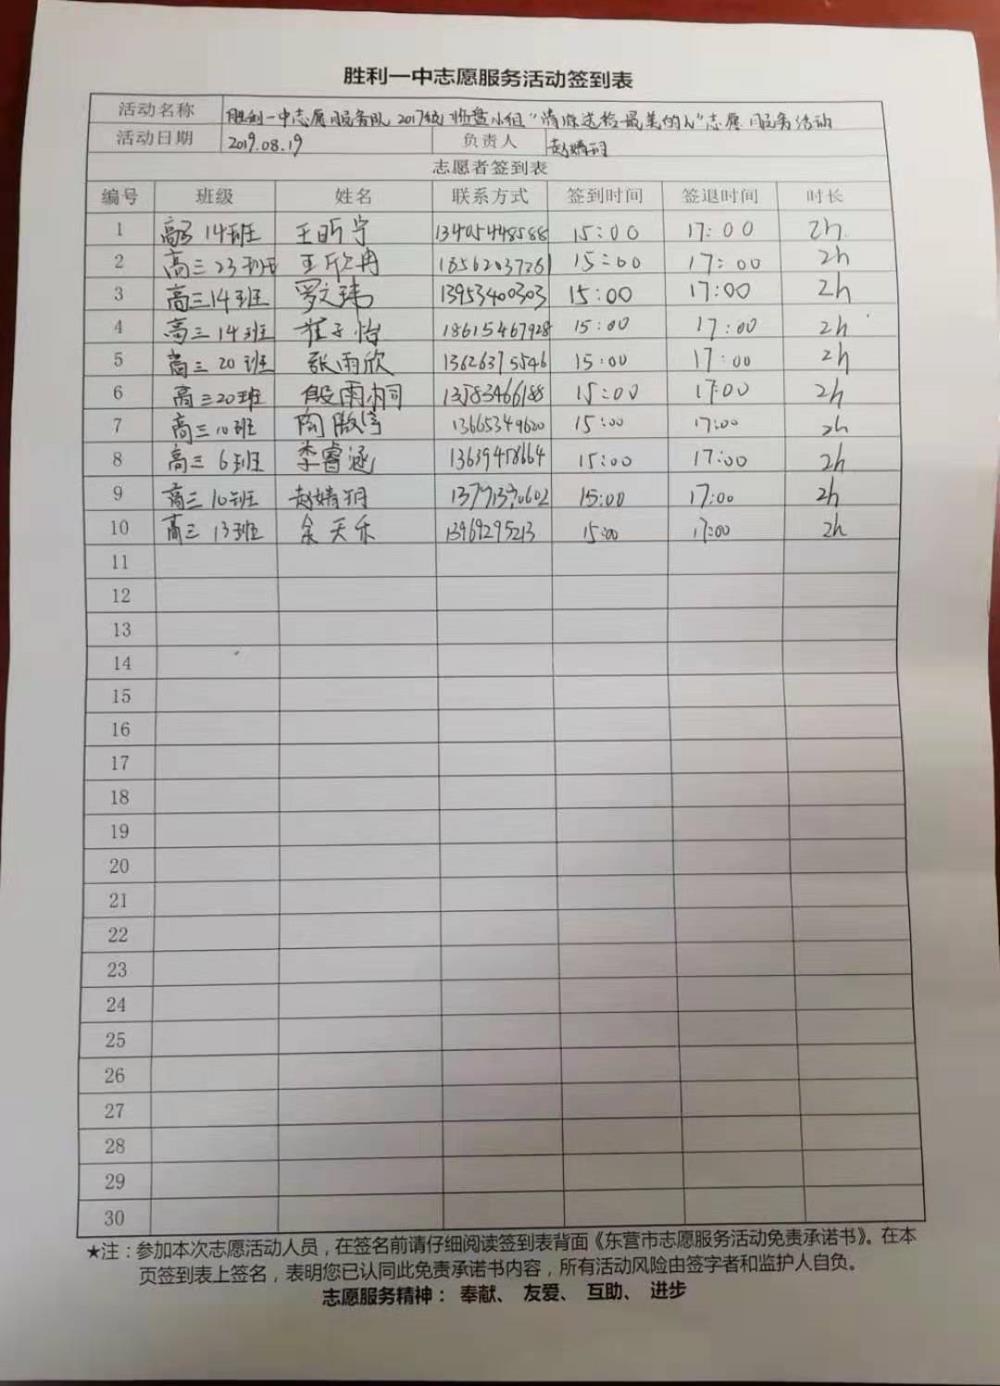 胜利一中志愿服务活动签到表
活动名称 胜利一中志愿服务队2017级 小组“清凉送给最美的人”志愿服务活动
活动日期 2019.08.19 负责人 赵婧羽
志愿者签到表
编号 班级 姓名 联系方式 签到时间 签退时间 时长
1 高三14班 王昕宁 13405448588 15:00 17:00 2h
2 高三23班 王欣冉 18562037261 15:00 17:00 2h
3 高三14班 罗文玮 13953400303 15:00 17:00 2h
4 高三14班 崔子怡 18615467928 15:00 17:00 2h
5 高三20班 张雨欣 13626375546 15:00 17:00 2h
6 高三20班 殷雨桐 13583466188 15:00 17:00 2h
7 高三10班 陶 13665349620 15:00 17:00 2h
8 高三6班 李睿涵 13639458664 15:00 17:00 2h
9 高三10班 赵婧羽 15:00 17:00 2h
10 高三13班 余天乐 13969295213 15:00 17:00 2h
11
12
13
14
15
16
17
18
19
20
21
22
23
24
25
26
27
28
29
30
★注：参加本次志愿活动人员，在签名前请仔细阅读签到表背面《东营市志愿服务活动免责承诺书》。在本
页签到表上签名，表明您已认同此免责承诺书内容，所有活动风险由签字者和监护人自负。
志愿服务精神： 奉献、 友爱、 互助、 进步